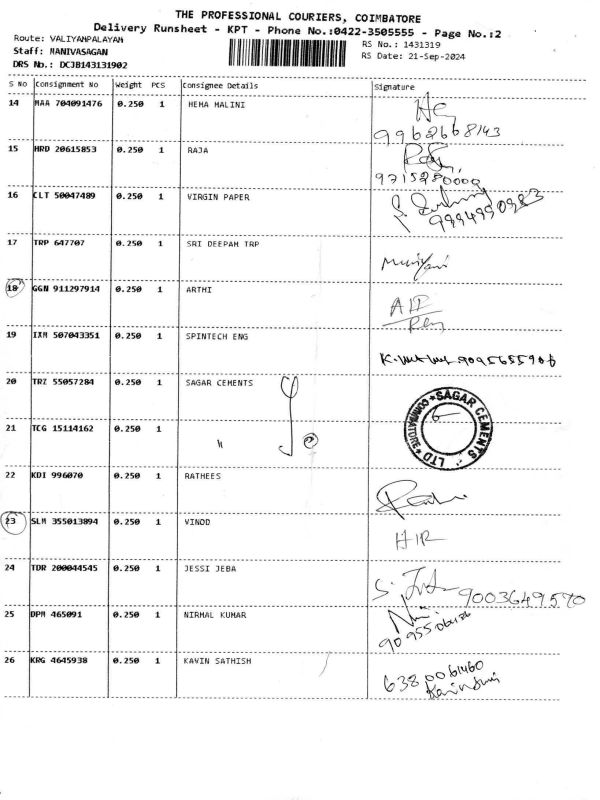 THE PROFESSIONAL COURIERS, COIMBATORE
Delivery Runsheet - KPT - Phone No.:0422-3505555 - Page No.:2
Route: VALIYAMPALAYAM
Staff: MANIVASAGAN
DRS No.: DCJB143131902
RS No.: 1431319
RS Date: 21-Sep-2024
S No Consignment No Weight PCS Consignee Details Signature
14 MAA 704091476 0.250 1 HEMA MALINI
9962668143
15 HRD 20615853 0.250 1 RAJA
9715280000
16 CLT 50047489 0.250 1 VIRGIN PAPER
9994990983
17 TRP 647707 0.250 1 SRI DEEPAM TRP
18 GGN 911297914 0.250 1 ARTHI
19 IXM 507043351 0.250 1 SPINTECH ENG
9095655906
20 TRZ 55057284 0.250 1 SAGAR CEMENTS
SAGAR CEMENTS LTD COIMBATORE
21 TCG 15114162 0.250 1 "
2
22 KDI 996070 0.250 1 RATHEES
23 SLM 355013894 0.250 1 VINOD
HIR
24 TDR 200044545 0.250 1 JESSI JEBA
9003649570
25 DPM 465091 0.250 1 NIRMAL KUMAR
26 KRG 4645938 0.250 1 KAVIN SATHISH
6380061460